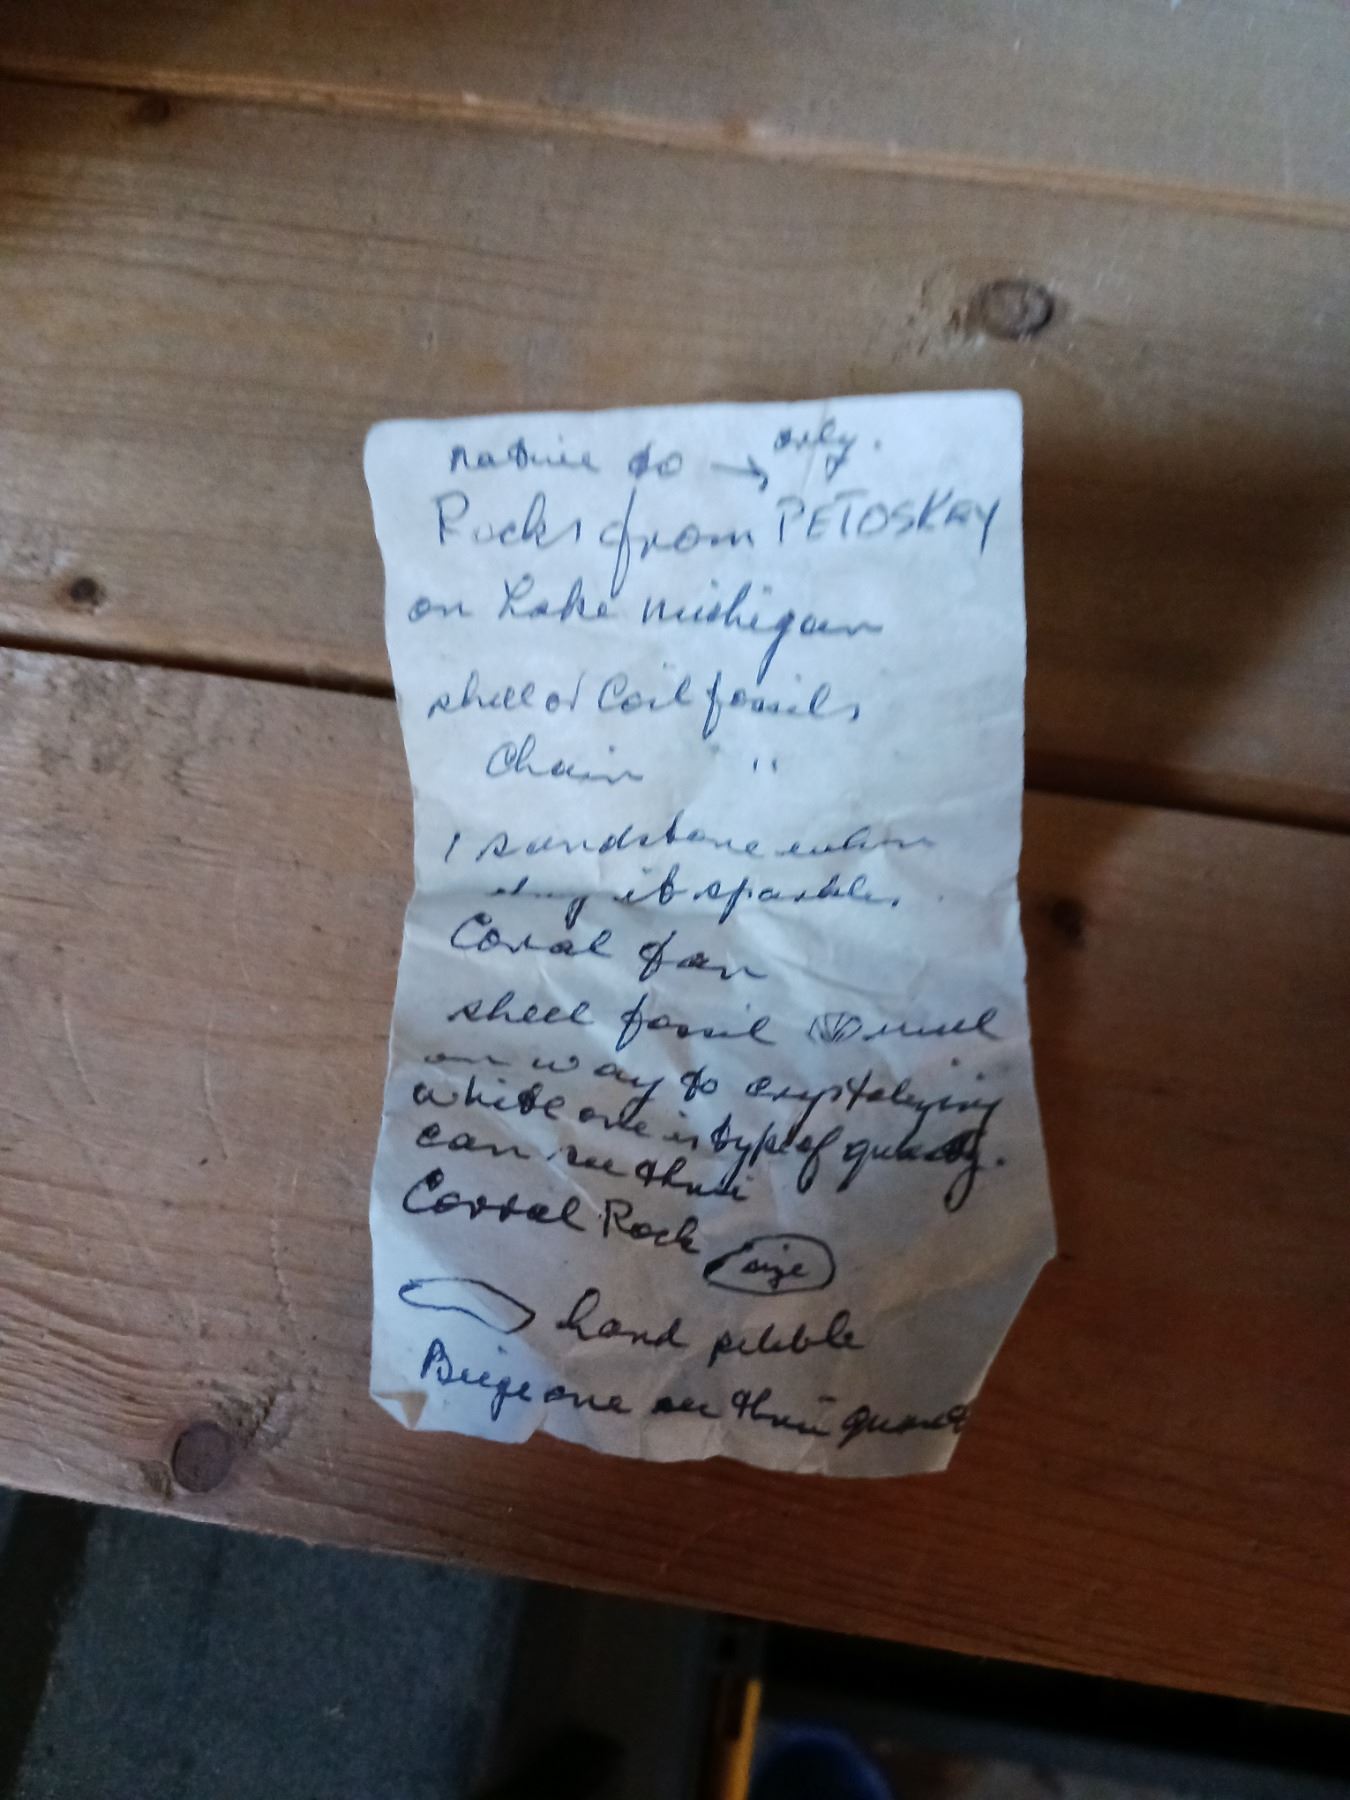 native to → only.
Rocks from PETOSKEY
on Lake Michigan
shell or Coil fossils
Chain "
1 sandstone when
dry it sparkles.
Coral fan
shell fossil well
on way to crystalizing
white one is type of quartz.
can see thru
Corral Rock size
hand pebble
Beige one see thru quartz